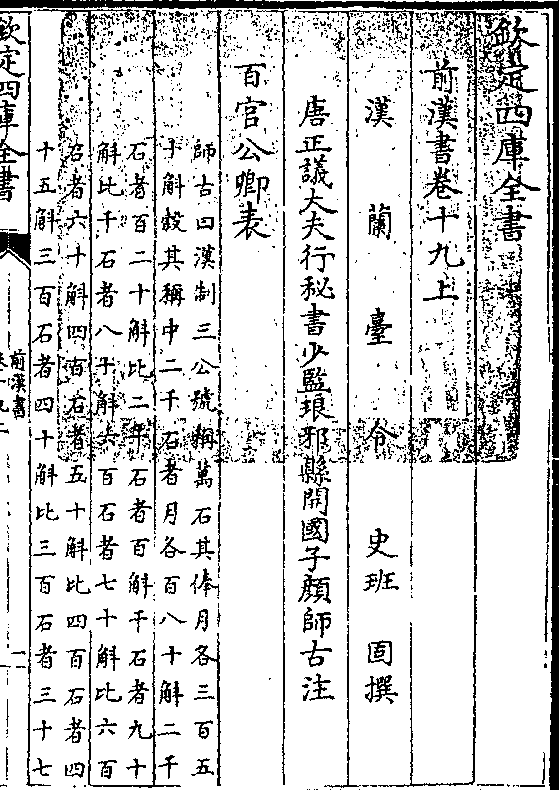 欽定四庫全書
前漢書卷十九上
漢蘭臺令史班固撰
唐正議大夫行秘書少監琅邪縣開國子顔師古注
百官公卿表
師古曰漢制三公號稱萬石其俸月各三百五
十斛穀其稱中二千石者月各百八十斛二千
石者百二十斛比二千石者百斛千石者九十
斛比千石者八十斛六百石者七十斛比六百
石者六十斛四百石者五十斛比四百石者四
十五斛三百石者四十斛比三百石者三十七
欽定四庫全書
前漢書